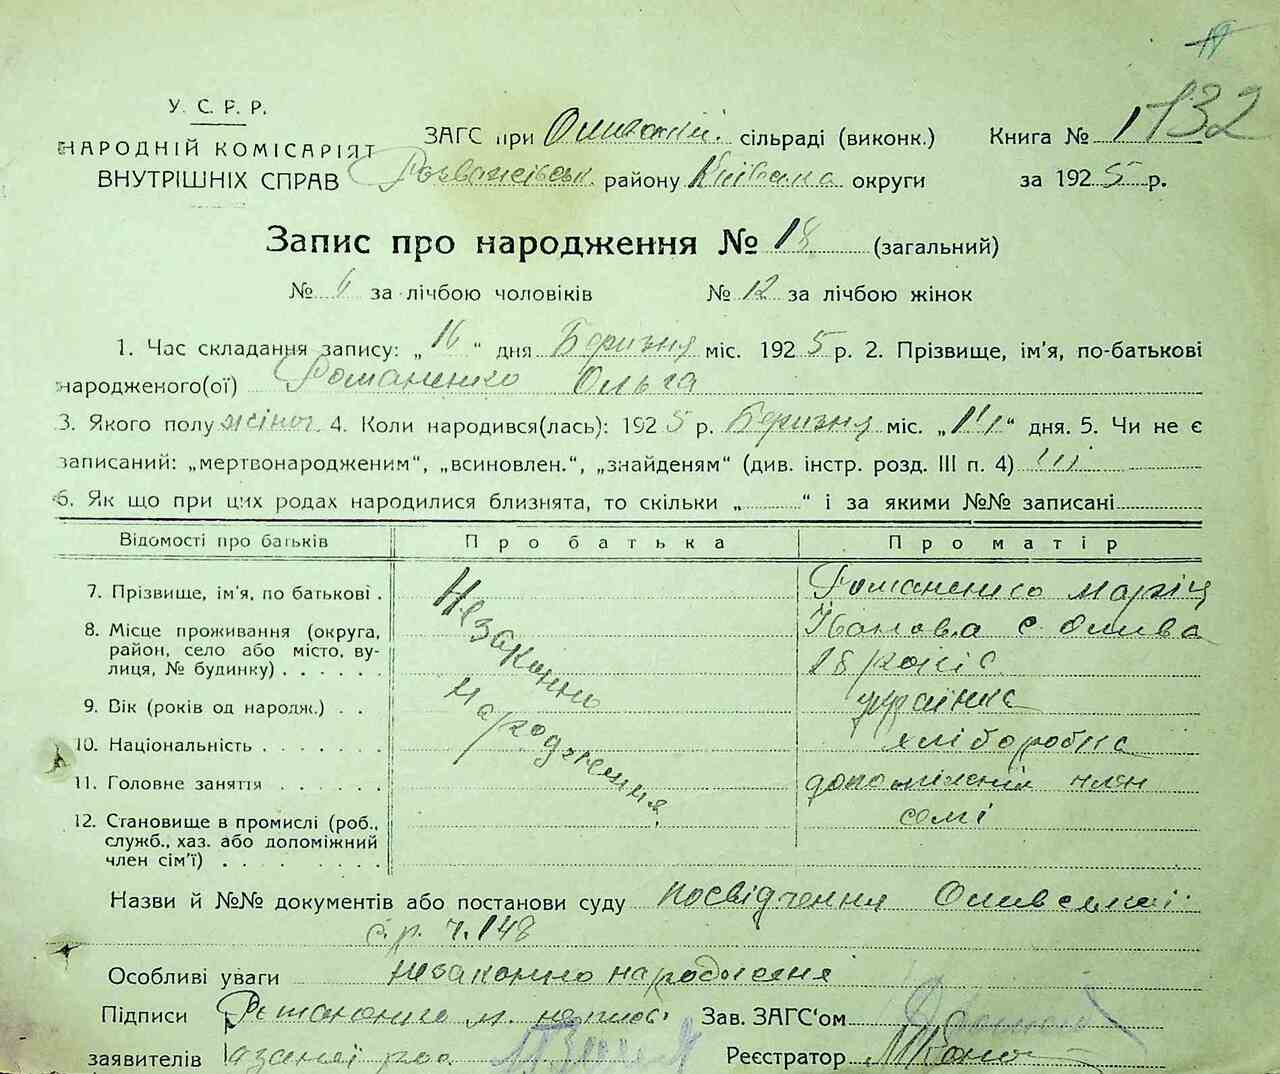 132
У. С. Р. Р.
НАРОДНІЙ КОМІСАРІЯТ
ВНУТРІШНІХ СПРАВ
ЗАГС при сільраді (виконк.) Книга № 1
району Київська округи за 1925 р.
Запис про народження № 18 (загальний)
№ за лічбою чоловіків № 12 за лічбою жінок
1. Час складання запису: „16“ дня Березня міс. 1925 р. 2. Прізвище, ім'я, по-батькові
народженого(ої) Романенко Ольга
3. Якого полу жіноч. 4. Коли народився(лась): 1925 р. Березня міс. „ “ дня. 5. Чи не є
записаний: „мертвонародженим“, „всиновлен.“, „знайденям“ (див. інстр. розд. III п. 4)
6. Як що при цих родах народилися близнята, то скільки „ “ і за якими №№ записані
Відомості про батьків Про батька Про матір
7. Прізвище, ім'я, по батькові . Незаконно народження Романенко Марія
8. Місце проживання (округа, Іванова с. Олива
район, село або місто, ву-
лиця, № будинку) . . . . . . 28 років
9. Вік (років од народж.) . . українка
10. Національність . . . . . . . хліборобка
11. Головне заняття . . . . . . член
12. Становище в промислі (роб., семі
служб., хаз. або допоміжний
член сім'ї) . . . . . . . .
Назви й №№ документів або постанови суду посвідчення
с.р. ч. 148
Особливі уваги незаконно народження
Підписи Романенко М. Зав. ЗАГС'ом
заявителів Реєстратор